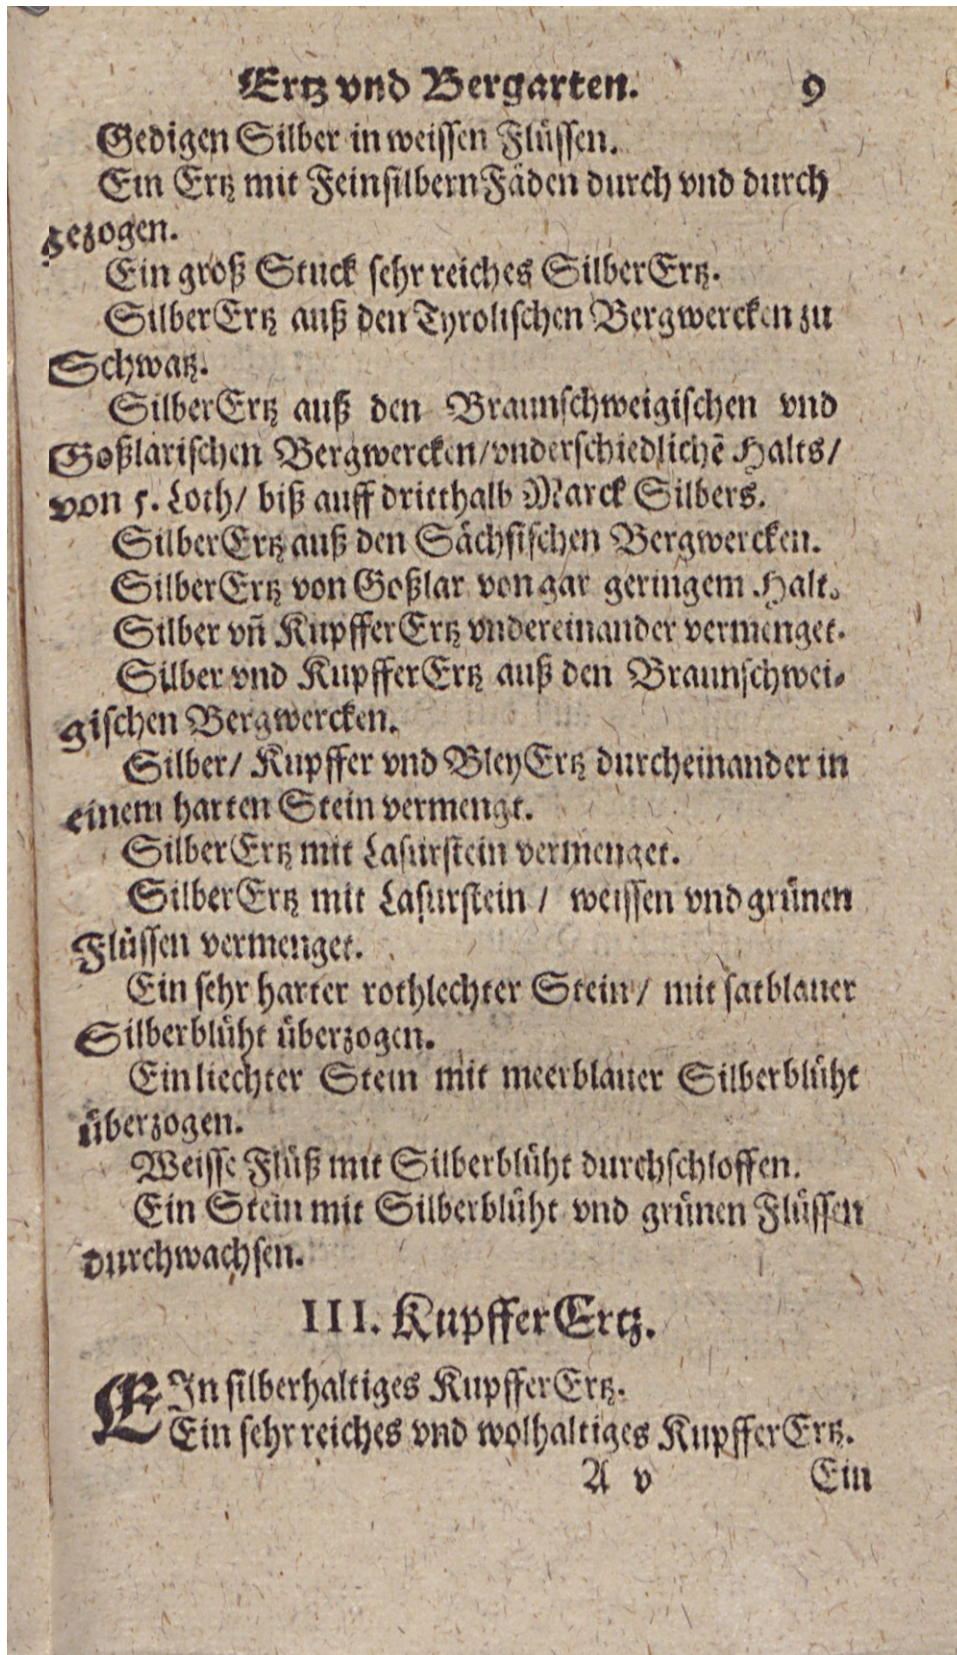 Ertz vnd Bergarten. 9
Gedigen Silber in weissen Flüssen.
Ein Ertz mit Feinsilbern Fäden durch vnd durch
gezogen.
Ein groß Stuck sehr reiches SilberErtz.
SilberErtz auß den Tyrolischen Bergwercken zu
Schwatz.
SilberErtz auß den Braunschweigischen vnd
Goßlarischen Bergwercken/vnderschiedlichē Halts/
von 5. Loth/ biß auff dritthalb Marck Silbers.
SilberErtz auß den Sächsischen Bergwercken.
SilberErtz von Goßlar von gar geringem Halt.
Silber vñ KupfferErtz vndereinander vermenget.
Silber vnd KupfferErtz auß den Braunschwei-
gischen Bergwercken.
Silber/ Kupffer vnd BleyErtz durcheinander in
einem harten Stein vermengt.
SilberErtz mit Lasurstein vermenget.
SilberErtz mit Lasurstein / weissen vnd grünen
Flüssen vermenget.
Ein sehr harter rothlechter Stein/ mit satblauer
Silberblüht überzogen.
Ein liechter Stein mit meerblauer Silberblüht
überzogen.
Weisse Flüß mit Silberblüht durchschloffen.
Ein Stein mit Silberblüht vnd grünen Flüssen
durchwachsen.
III. KupfferErtz.
EIn silberhaltiges KupfferErtz.
Ein sehr reiches vnd wolhaltiges KupfferErtz.
A v Ein